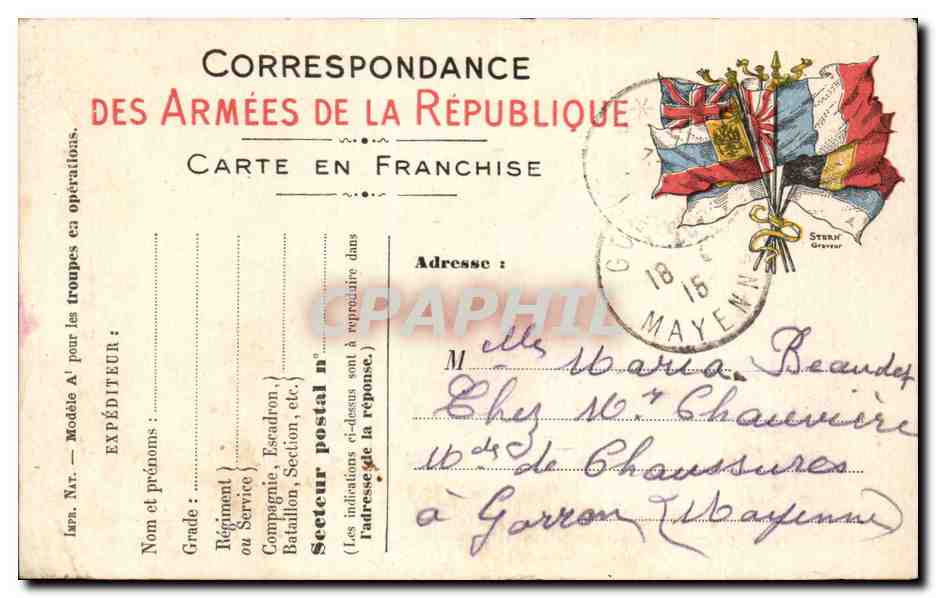 CORRESPONDANCE
DES ARMÉES DE LA RÉPUBLIQUE
CARTE EN FRANCHISE
STERN
Graveur
Adresse :
MAYENNE
18
15
Melle Maria Beaudet
Chez Mr Chauvière
Md de Chaussures
à Gorron (Mayenne)
IMPR. NAT. — Modèle A1 pour les troupes en opérations.
EXPÉDITEUR :
Nom et prénoms :
Grade :
Régiment
ou Service
Compagnie, Escadron,
Bataillon, Section, etc.
Secteur postal n°
(Les indications ci-dessus sont à reproduire dans
l'adresse de la réponse.)
CPAPHIL